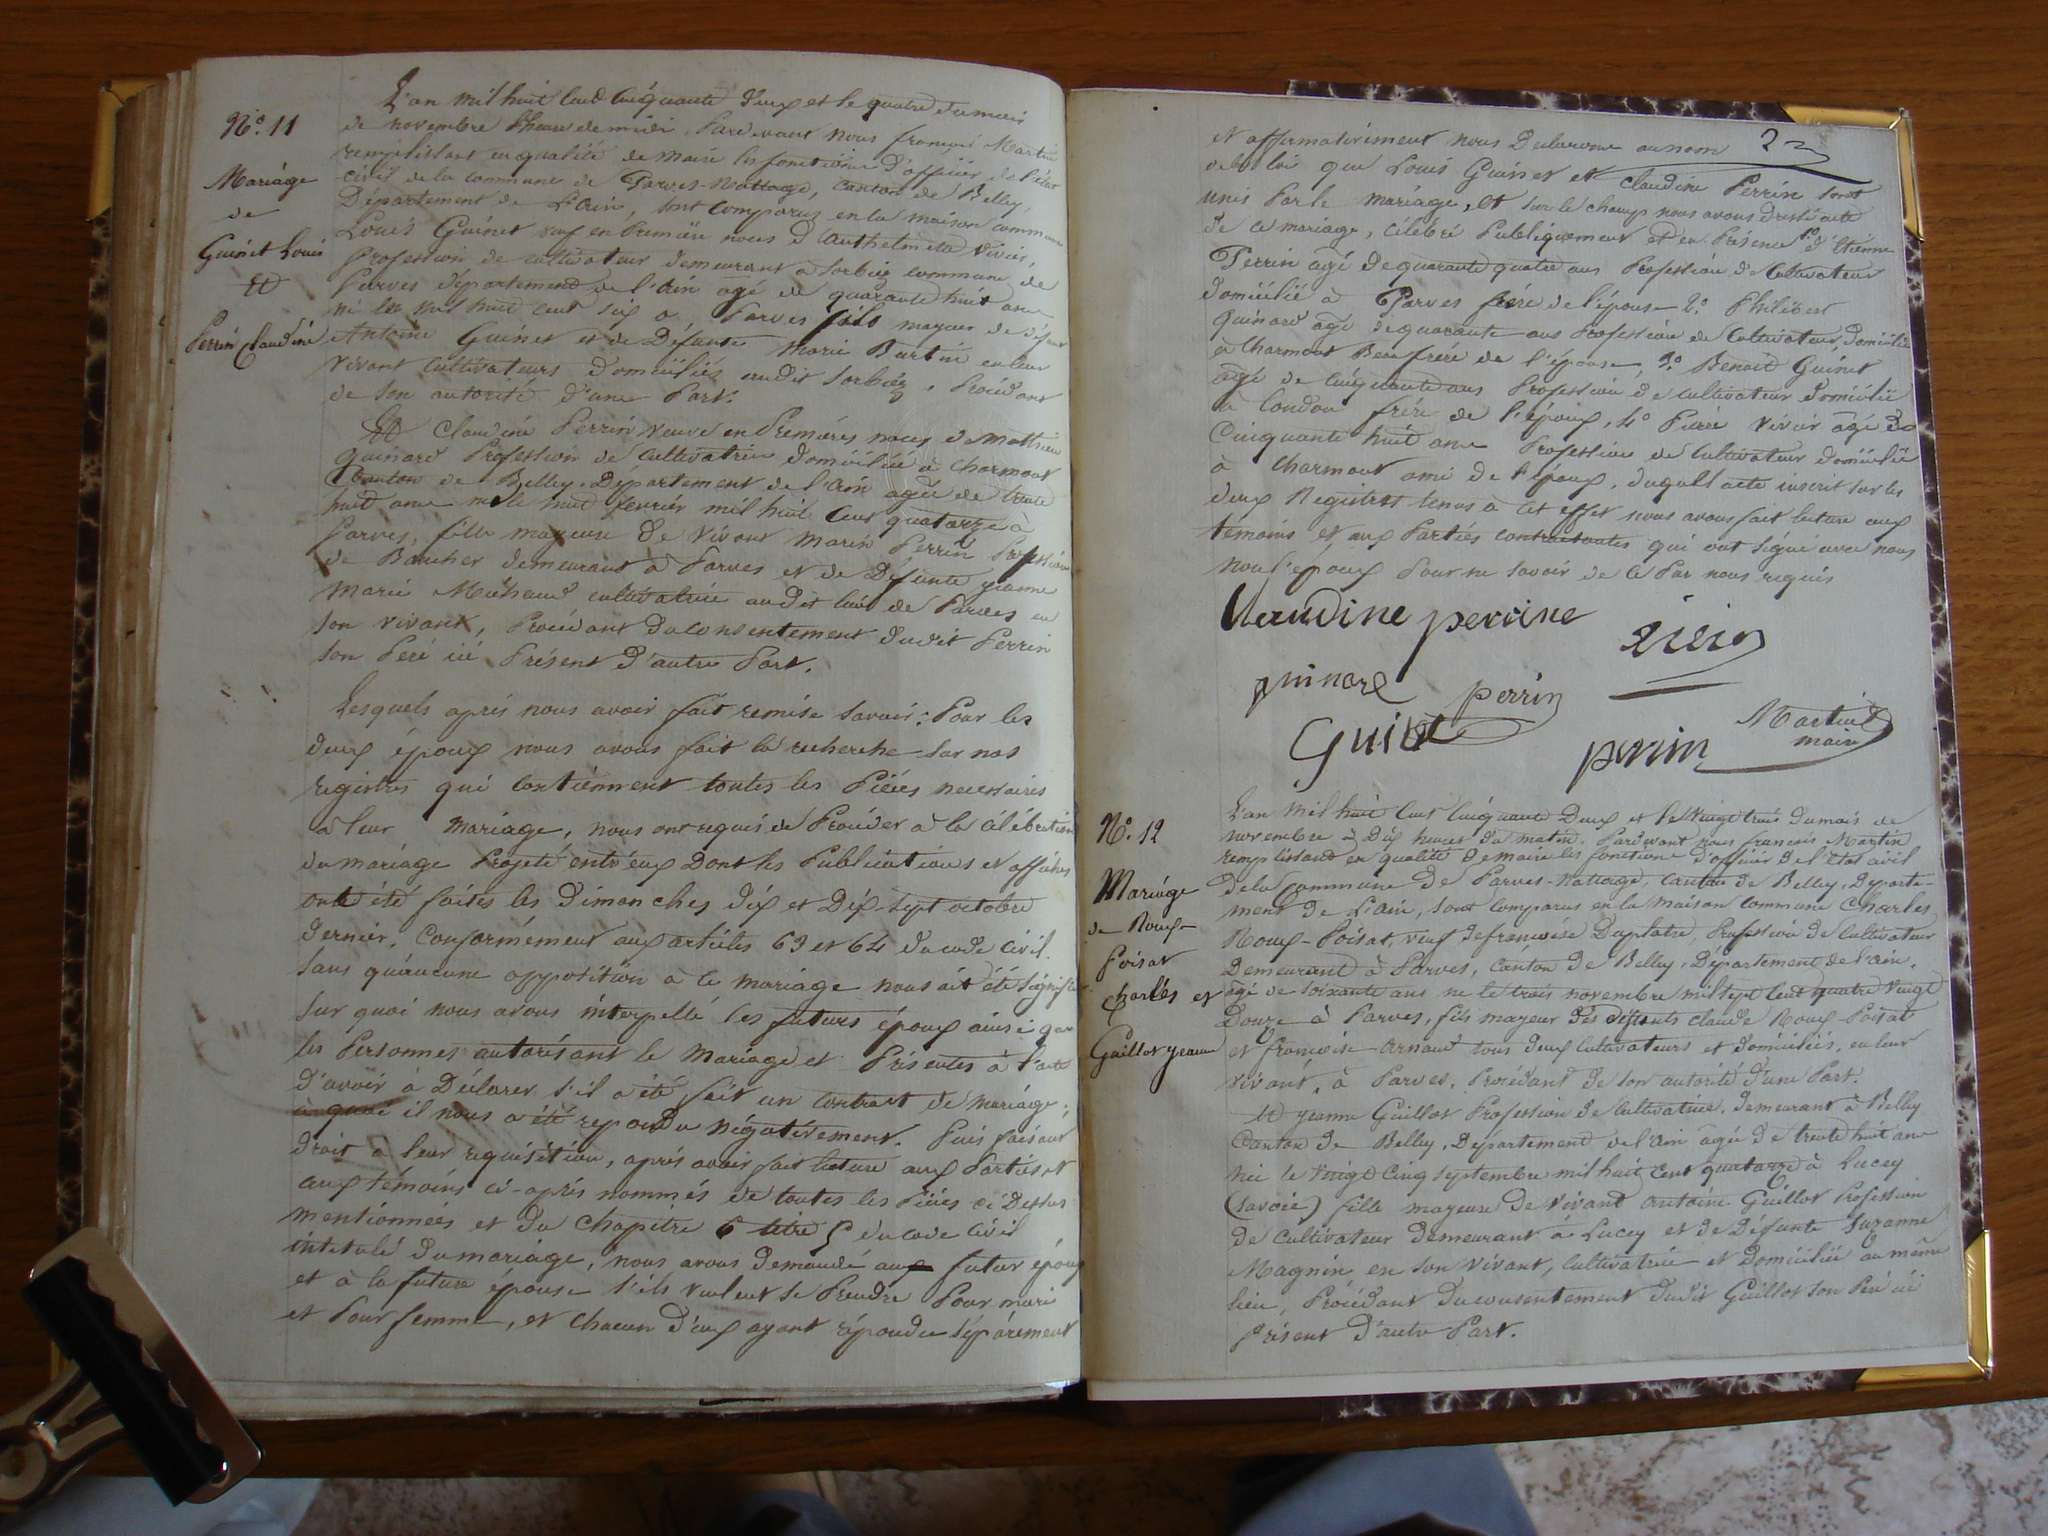 N.º 11
Mariage
de
Guinet Louis
et
Perrin Claudine
L'an mil huit cent cinquante deux et le quatre du mois
de novembre l'heure de midi, Pardevant nous françois Martin
remplissant en qualité de maire les fonctions d'officier de l'état
civil de la commune de Parves-Nattages, canton de Belley,
Département de L'ain, sont comparus en la maison commune
Louis Guinet veuf en Première noces d'Anthelmette Vivier,
Profession de cultivateur demeurant à Sorbiez commune de
Parves département de l'ain agé de quarante huit ans
né le mil huit cent six à Parves fils mayeur de défunt
Antoine Guinet et de Défunte Marie Burtin en leur
vivant cultivateurs domiciliés audit Sorbiez, Procédant
de son autorité d'une Part.
Et Claudine Perrin veuve en Premières noces de Mathieu
Guinard Profession de cultivatrice domiciliée à Charmont
Canton de Belley, Département de l'ain agée de trente
huit ans née le huit fevrier mil huit cent quatorze à
Parves, fille mayeure de vivant Marin Perrin Profession
de Boucher demeurant à Parves et de Défunte jeanne
Marie cultivatrice audit lieu de Parves en
son vivant, Procédant du consentement dudit Perrin
son Peré ici Présent d'autre Part.
Lesquels aprés nous avoir fait remise savoir: Pour les
deux époux nous avons fait la recherche sur nos
registres qui contiennent toutes les Piéces necessaires
à leur mariage, nous ont requis de Procéder à la célébration
du mariage Projeté entr'eux Dont les Publications et affiches
ont été faites les Dimanches dix et Dix-sept octobre
dernier, Conformément aux articles 63 et 64 du code civil.
Sans qu'aucune opposition à ce mariage nous ait été signifiée
sur quoi nous avons interpellé les futurs époux ainsi que
les Personnes autorisant le Mariage et Présentes à l'acte
d'avoir à Déclarer s'il a été fait un contract de mariage;
à quoi il nous a été repondu négativement. Puis faisant
droit à leur réquisition, aprés avoir fait lecture aux Parties et
aux témoins ci-aprés nommés de toutes les Piéces ci Dessus
mentionnées et du chapitre 6 titre 5 du code civil
intitulé du mariage, nous avons demandé aux futur époux
et à la future épouse s'ils veulent se Prendre Pour mari
et Pour femme, et chacun d'eux ayant répondu séparément
22
et affirmativement nous Declarons au nom
de la loi que Louis Guinet et Claudine Perrin sont
unis Par le mariage, et sur le champ nous avons dressé acte
de ce mariage, célébré Publiquement et en Présence 1º d'Etienne
Perrin agé de quarante quatre ans Profession de cultivateur
domicilié à Parves frére de l'épouse 2º Philibert
Guinard agé de quarante ans Profession de cultivateur, domicilié
à Charmont Beau frére de l'épouse, 3º Benoit Guinet
agé de cinquante ans Profession de cultivateur domicilié
à frére de l'époux, 4º Pierre Vivier agé de
Cinquante huit ans Profession de cultivateur domicilié
à Charmont ami de l'époux, duquel acte inscrit sur les
deux Registres tenus à cet effet nous avons fait lecture aux
témoins et aux Parties contractantes qui ont signé avec nous
non l'époux Pour ne savoir de ce Par nous requis
Claudine perrine
vivier
guinard
perrin
Guinet
perrin
Martin
maire
N.º 12
Mariage
de Roux-
Poisat
Charles et
Guillot jeanne
L'an Mil huit cent cinquante Deux et le Vingt trois du mois de
novembre à Dix heures du matin. Pardevant nous françois Martin
remplissant en qualité de maire les fonctions d'officier de l'état civil
de la Commune de Parves-Nattages, canton de Belley, Départe-
ment de L'ain, sont comparus en la maison commune Charles
Roux-Poisat, veuf de françoise Duplatre, Profession de cultivateur
Demeurant à Parves, canton de Belley, Département de l'ain,
agé de soixante ans né le trois novembre mil sept cent quatre vingt
Douze à Parves, fils mayeur des défunts Claude Roux-Poisat
et françoise Arnaud tous deux cultivateurs et domiciliés, en leur
vivant, à Parves, Procédant de son autorité d'une Part.
Et jeanne Guillot Profession de cultivatrice, demeurant à Belley
Canton de Belley, Département de l'ain agée de trente huit ans
née le vingt cinq septembre mil huit cent quatorze à Lucey
(Savoie) fille mayeure de vivant Antoine Guillot Profession
de cultivateur demeurant à Lucey et de Défunte Suzanne
Magnin en son vivant, cultivatrice et Domiciliée au même
lieu, Procédant du consentement dudit Guillot son Peré ici
Présent d'autre Part.